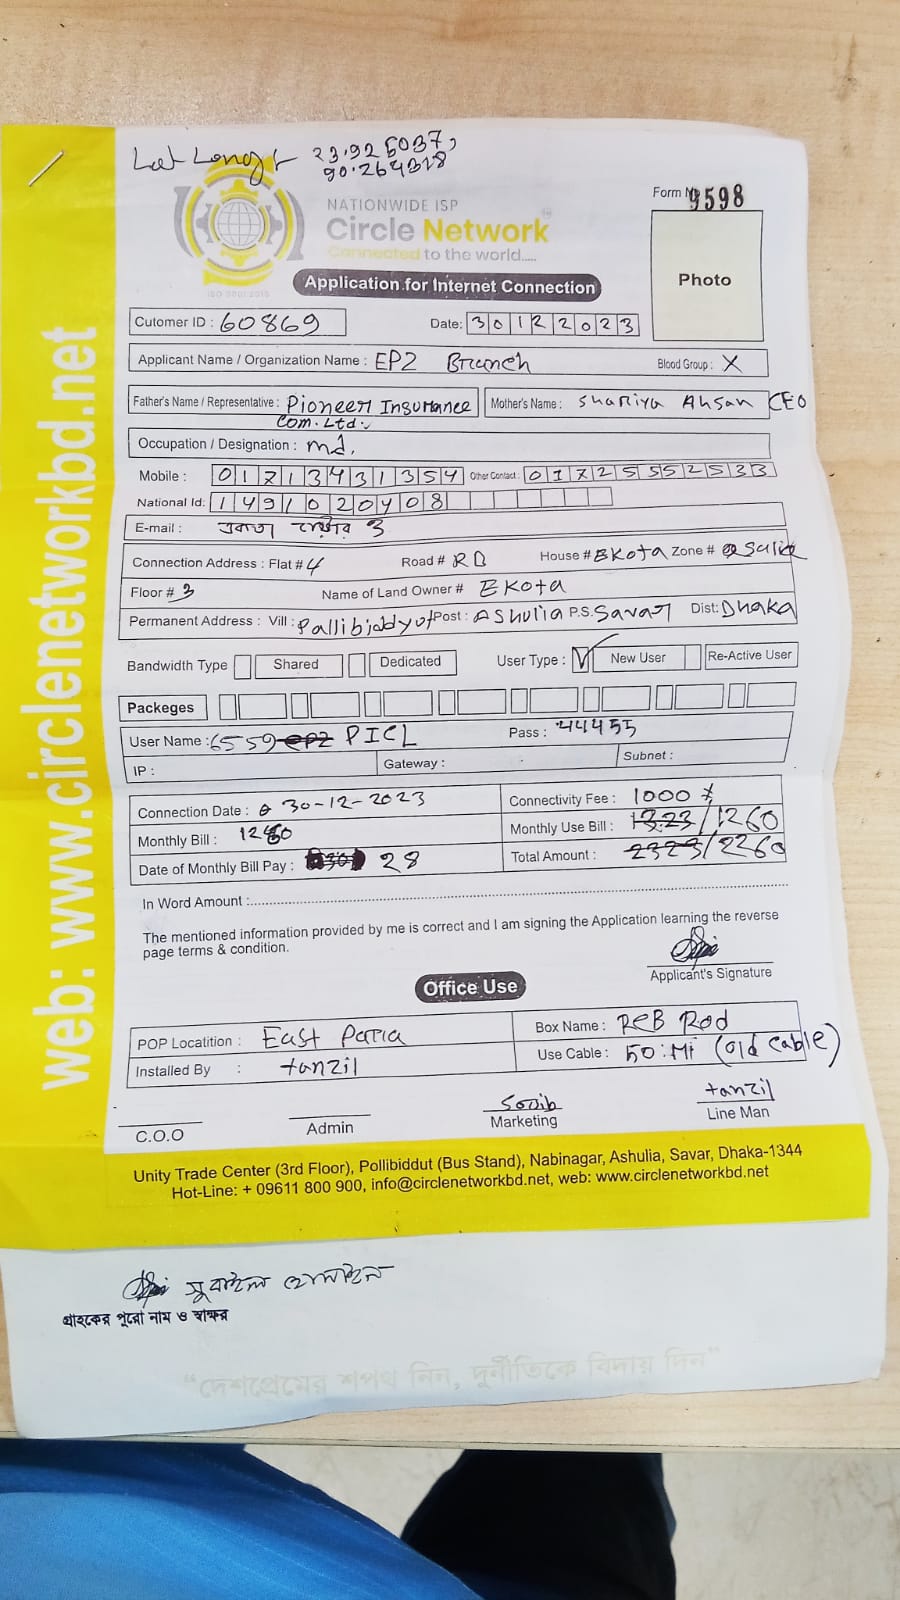 Lat Long 23.926037,
90.264318
NATIONWIDE ISP
Circle Network
Connected to the world.....
ISO 9001:2015
Form 9598
Photo
Application for Internet Connection
Cutomer ID : 60869 Date: 30122023
Applicant Name / Organization Name : EPZ Branch Blood Group : X
Father's Name / Representative : Pioneer Insurance Mother's Name : Shariya Ahsan CEO
Com. Ltd.
Occupation / Designation : md.
Mobile : 01713431354 Other Contact : 01725552533
National Id: 1491020408
E-mail : 3
Connection Address : Flat # 4 Road # RD House # EKota Zone #
Floor # 3 Name of Land Owner # EKota
Permanent Address : Vill : Pallibiddyut Post : AShulia P.S. Savar Dist: Dhaka
Bandwidth Type Shared Dedicated User Type : New User Re-Active User
Packeges
User Name : 6559 epz PICL Pass : 44455
IP : Gateway : Subnet :
Connection Date : 30-12-2023 Connectivity Fee : 1000
Monthly Bill : 1260 Monthly Use Bill : 1323/1260
Date of Monthly Bill Pay : 28 Total Amount : 2323/2260
In Word Amount :
The mentioned information provided by me is correct and I am signing the Application learning the reverse
page terms & condition.
Applicant's Signature
Office Use
POP Locatition : East Paria Box Name : REB Rod
Installed By : tanzil Use Cable : 50:Mi (old cable)
C.O.O Admin Marketing tanzil Line Man
Unity Trade Center (3rd Floor), Pollibiddut (Bus Stand), Nabinagar, Ashulia, Savar, Dhaka-1344
Hot-Line: + 09611 800 900, info@circlenetworkbd.net, web: www.circlenetworkbd.net
web: www.circlenetworkbd.net
গ্রাহকের পুরো নাম ও স্বাক্ষর
“দেশপ্রেমের শপথ নিন, দুর্নীতিকে বিদায় দিন”